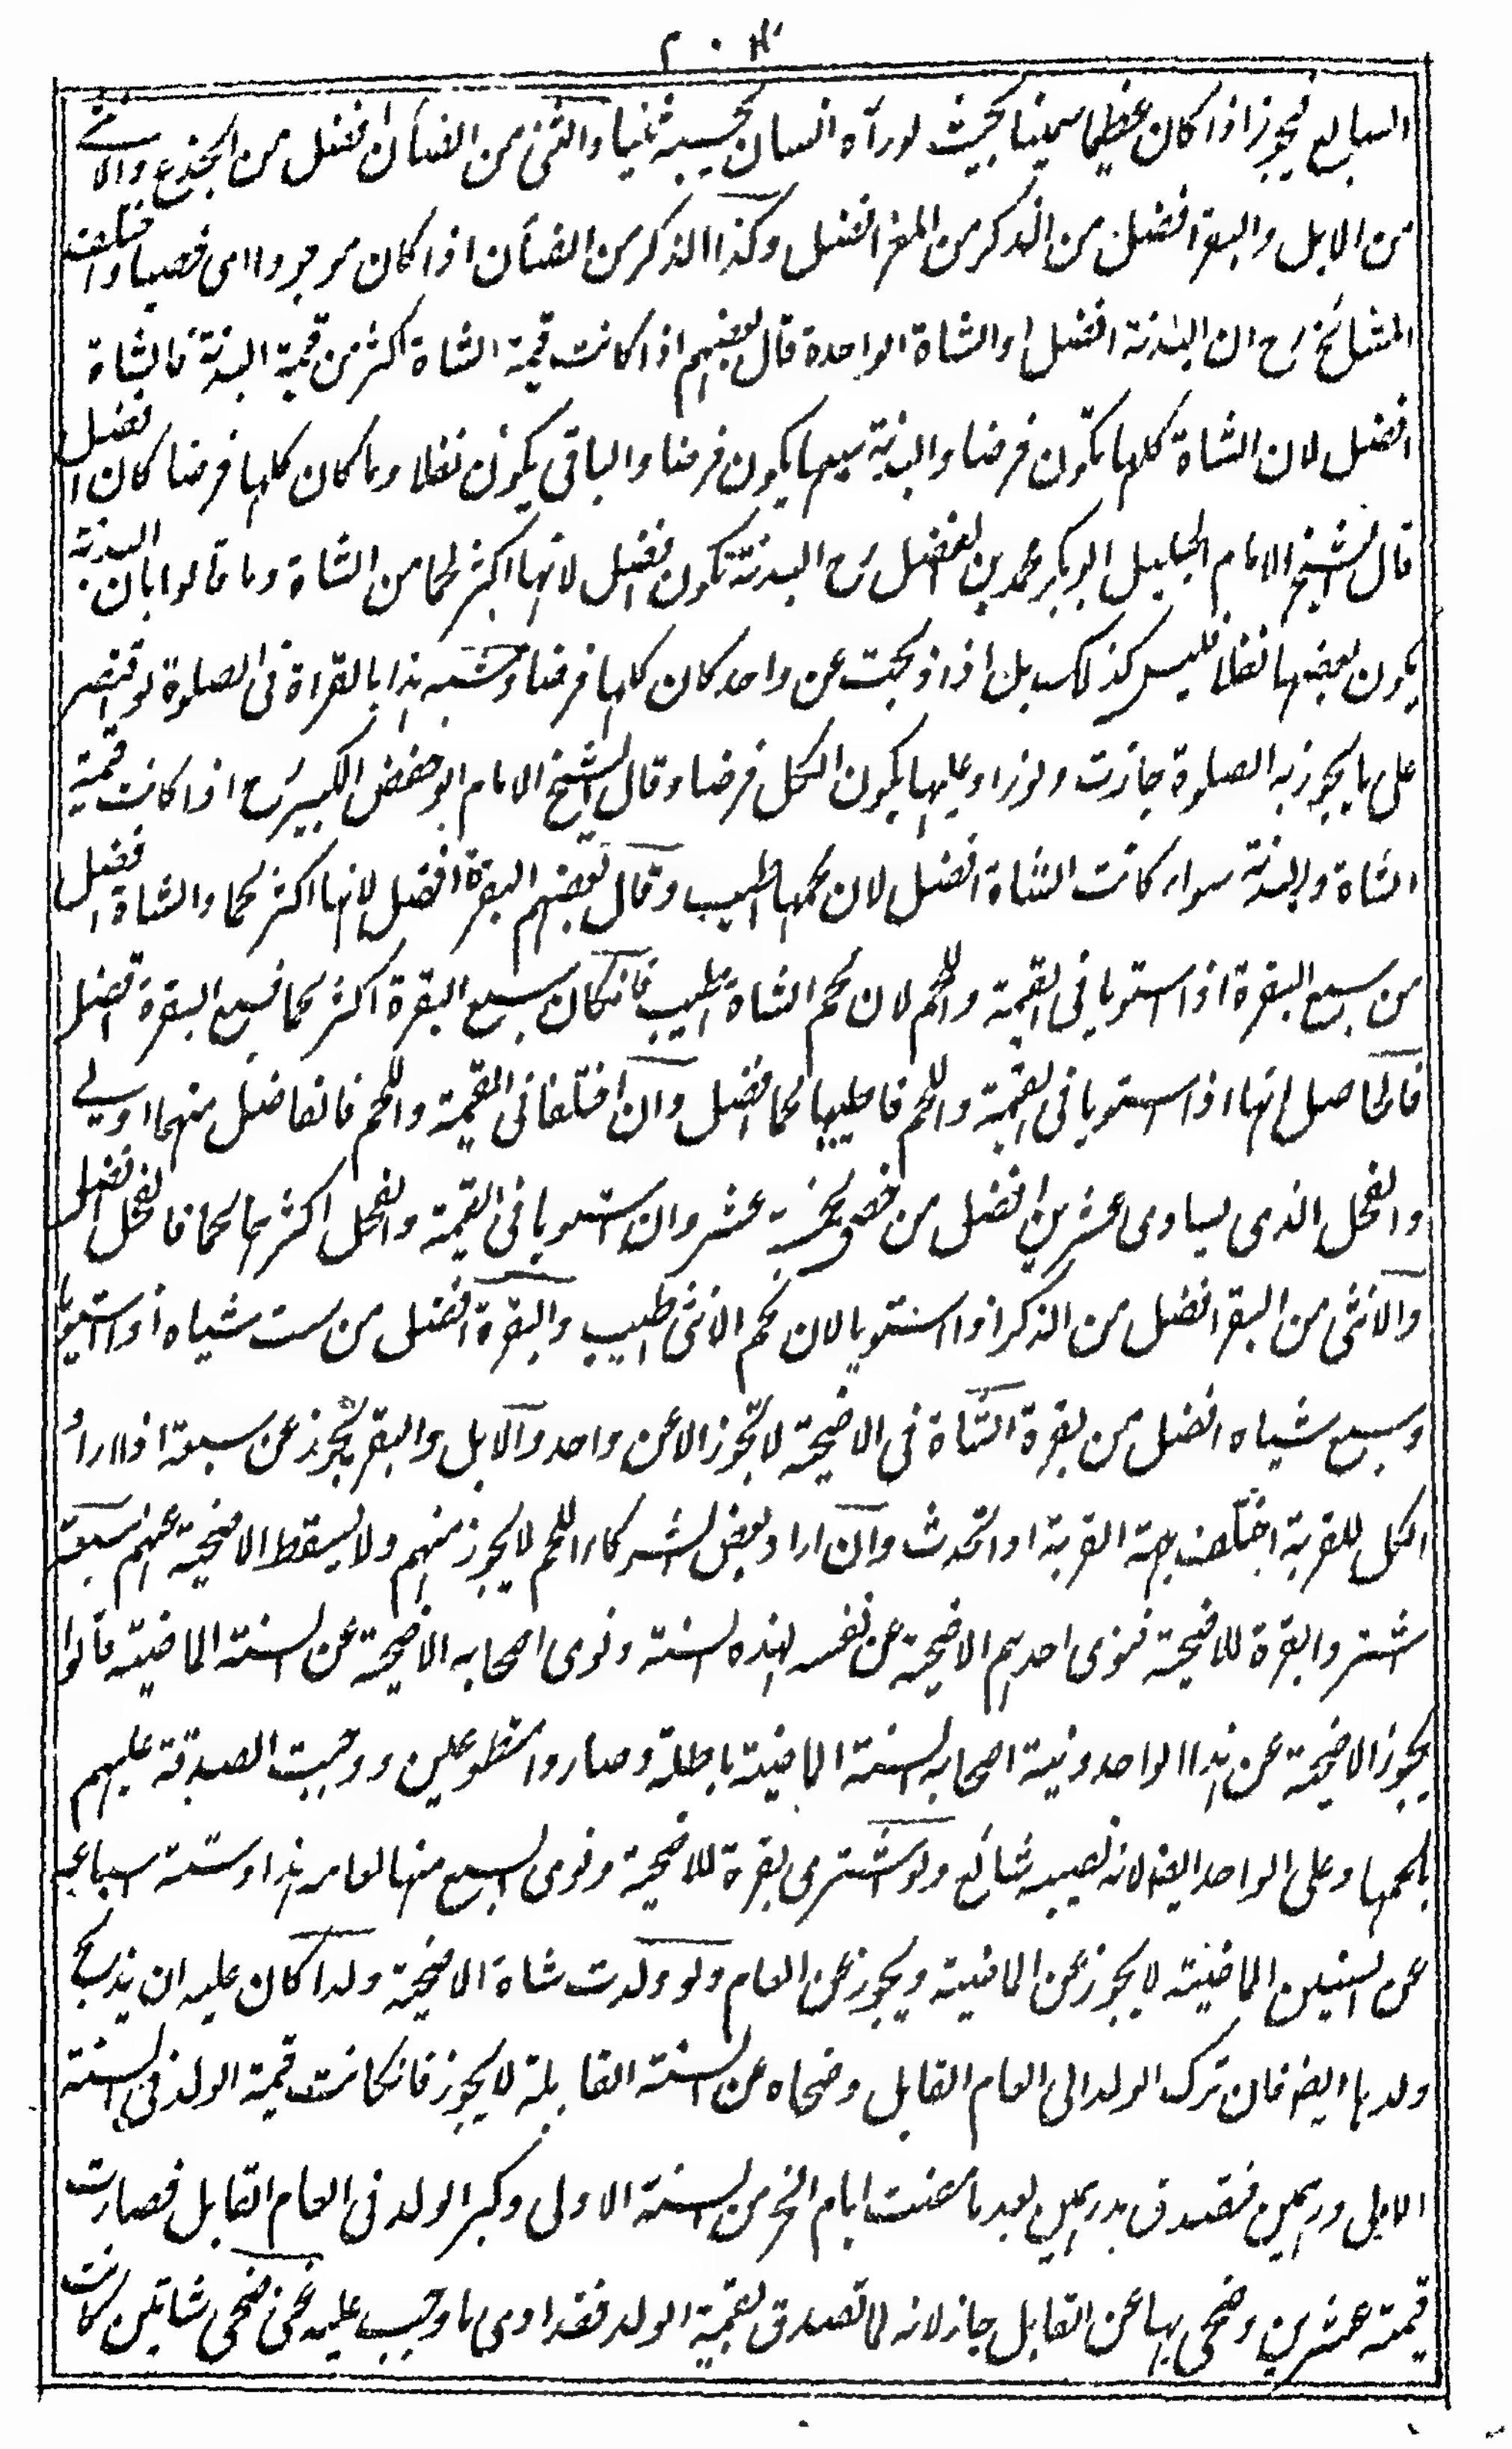 ٢٠٤
السابع يجوز اذا كان عظيما سمينا بحيث لو رآه انسان يحسبه ثنيا والثنى من الضأن افضل من الجذع والانثى
من الابل والبقر افضل من الذكر من المعز افضل وكذا الذكر من الضأن اذا كان موجودا اى خصيا واختلف
المشائخ رح ان البدنة افضل او الشاة الواحدة قال بعضهم اذا كانت قيمة الشاة اكثر من قيمة البدنة فالشاة
افضل لان الشاة كلها تكون فرضا والبدنة سبعها يكون فرضا والباقى يكون نفلا وما كان كلها فرضا كان افضل
قال الشيخ الامام الجليل ابو بكر محمد بن الفضل رح البدنة تكون افضل لانها اكثر لحما من الشاة وما قالوا بان البدنة
يكون بعضها نفلا فليس كذلك بل اذا ذبحت عن واحد كان كلها فرضا وشبه هذا بالقراة فى الصلوة لو اقتصر
على ما يجوز به الصلوة جازت ولو زاد عليها يكون الكل فرضا وقال الشيخ الامام ابو حفص الكبير رح اذا كانت قيمة
الشاة والبدنة سواء كانت الشاة افضل لان لحمها اطيب وقال بعضهم البقرة افضل لانها اكثر لحما والشاة افضل
من سبع البقرة اذا استويا فى القيمة واللحم لان لحم الشاة اطيب فانكان سبع البقرة اكثر لحما فسبع البقرة افضل
فالحاصل انها اذا استويا فى القيمة واللحم فاطيبها لحما افضل وان اختلفا فى القيمة واللحم فالفاضل منهما اولى
والفحل الذى يساوى عشرين افضل من خصى بخمسة عشر وان استويا فى القيمة والفحل اكثرهما لحما فالفحل افضل
والانثى من البقر افضل من الذكر اذا استويا لان لحم الانثى اطيب والبقرة افضل من ست شياه اذا استويا
وسبع شياه افضل من بقرة الشاة فى الاضحية لا تجوز الا عن واحد والابل والبقر يجوز عن سبعة اذا اراد
الكل للقربة اختلفت جهة القربة او اتحدث وان اراد بعض الشركاء اللحم لا يجوز منهم ولا يسقط الاضحية عنهم سبعة
اشتروا بقرة للاضحية فنوى احدهم الاضحية عن نفسه لهذه السنة ونوى اصحابه الاضحية عن السنة الماضية قالوا
يجوز الاضحية عن هذا الواحد ونية اصحابه للسنة الماضية باطلة وصاروا متطوعين ووجبت الصدقة عليهم
بلحمها وعلى الواحد ايضا لان نصيبه شائع ولو اشترى بقرة للاضحية ونوى السبع منها لعامه هذا وستة اسباعه
عن السنين الماضية لا يجوز عن الماضية ويجوز عن العام ولو ولدت شاة الاضحية ولدا كان عليه ان يذبح
ولدها ايضا فان ترك الولد الى العام القابل وضحاه عن السنة القابلة لا يجوز فانكانت قيمة الولد فى السنة
الاولى درهمين فتصدق بدرهمين بعد ما مضت ايام النحر من السنة الاولى وكبر الولد فى العام القابل فصارت
قيمته عشرين وضحى بها عن القابل جاز لانه لما تصدق بقيمة الولد فقد ادى ما وجب عليه غنى ضحى شاتين كانت